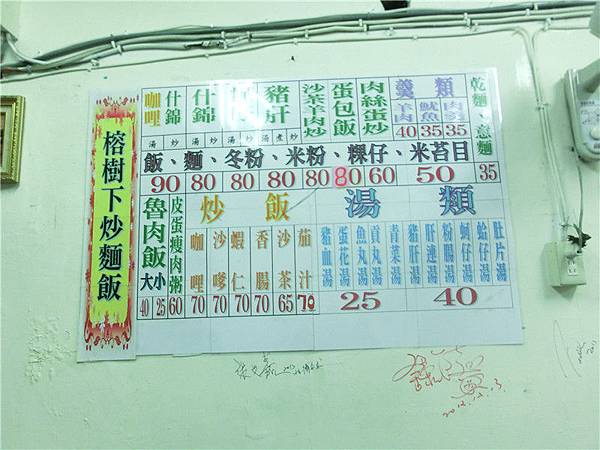 榕樹下炒麵飯
咖哩 什錦 什錦 豬肝 沙茶羊肉炒 蛋包飯 肉絲蛋炒 羹類 乾麵、意麵
羊肉 魷魚 肉羹
40 35 35
湯 炒 湯 炒 湯 炒 湯 煮 炒
飯、麵、冬粉、米粉、粿仔、米苔目
90 80 80 80 80 80 60 50 35
魯肉飯 皮蛋瘦肉粥 炒飯 湯類
大 小
40 25 60
咖哩 沙嗲 蝦仁 香腸 沙茶 茄汁
70 70 70 70 65 70
豬血湯 蛋花湯 魚丸湯 貢丸湯 青菜湯
25
豬肝湯 肝連湯 粉腸湯 蚵仔湯 蛤仔湯 肚片湯
40